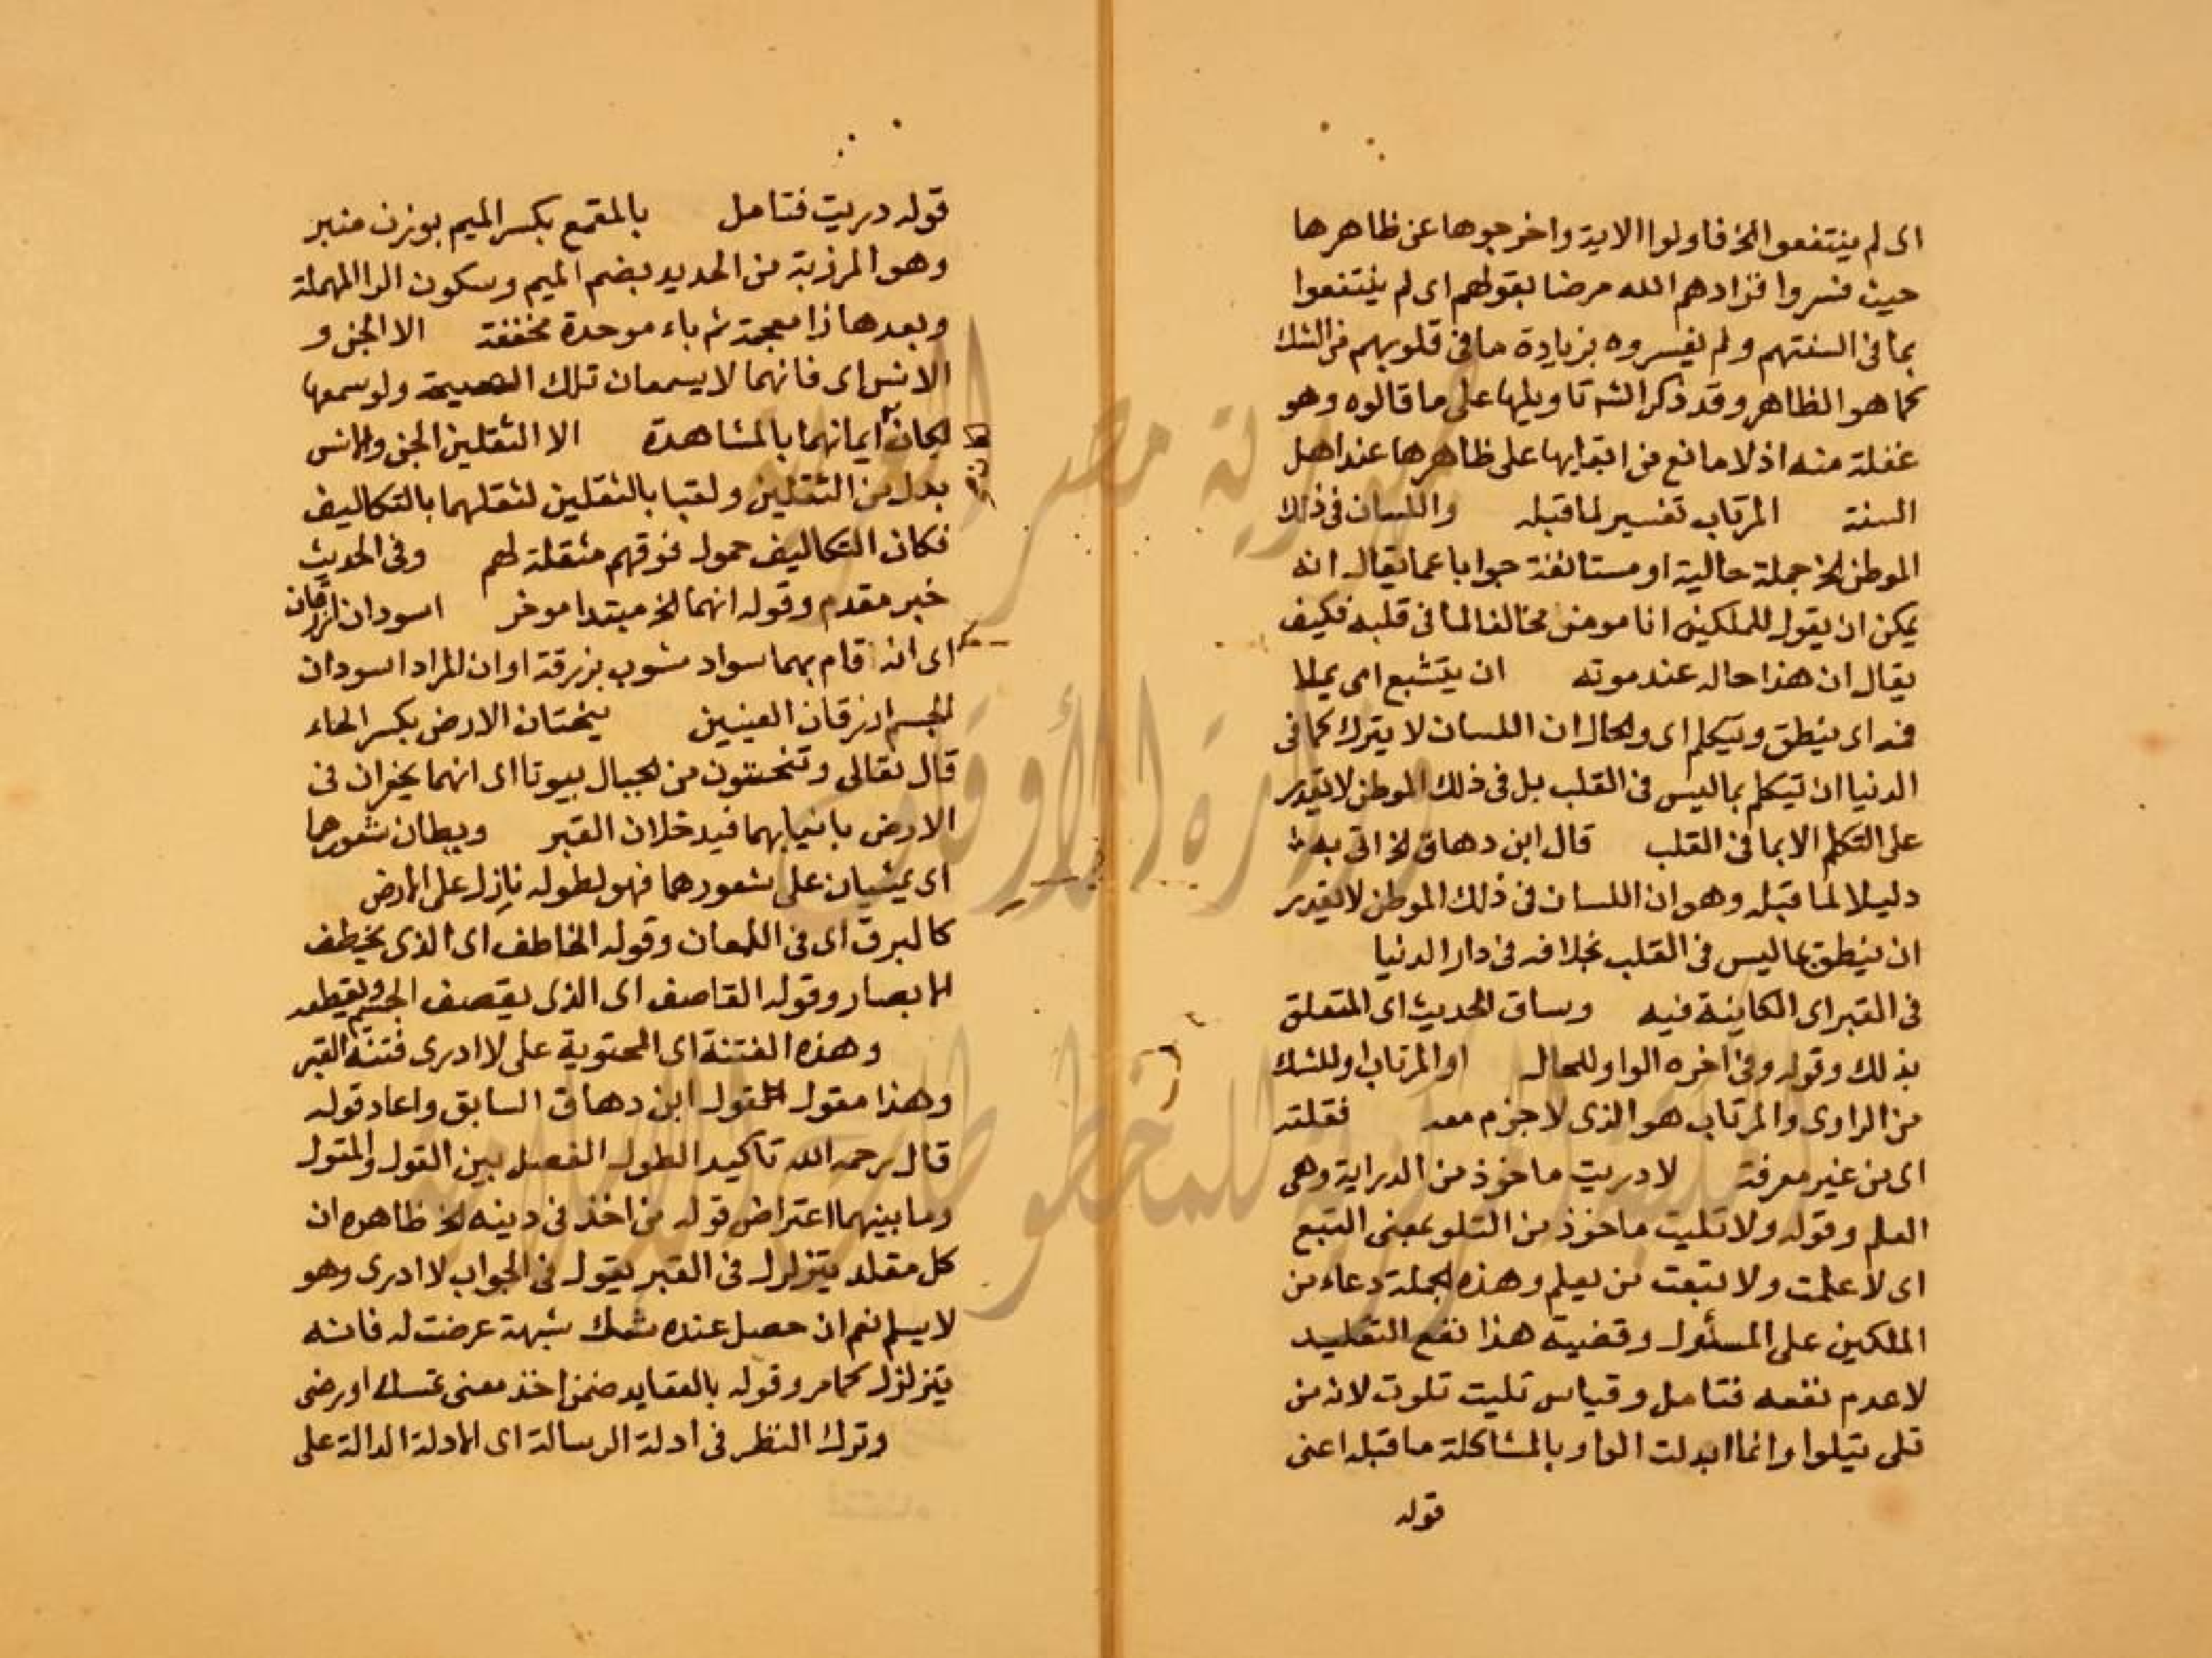 اى لم ينتفعوا الخ فاولوا الاية واخرجوها عن ظاهرها
حيث فسروا فزادهم الله مرضا بقولهم اى لم ينتفعوا
بما فى السنتهم ولم يفسروه بزيادة ما فى قلوبهم من الشك
كما هو الظاهر وقد ذكر الشه تاويلها على ما قالوه وهو
غفلة منه اذ لا مانع من ابقايها على ظاهرها عند اهل
السنة المرتاب تفسير لما قبله واللسان فى ذلك
الموطن الخ جملة حالية او مستانفة جوابا عما يقال انه
يمكن ان يقول للملكين انا مومن مخالفا لما فى قلبه فكيف
يقال ان هذا حاله عند موته ان يتشبع اى يملا
فمه اى ينطق ويتكلم اى والحال ان اللسان لا يترك كما فى
الدنيا ان تيكلم بما ليس فى القلب بل فى ذلك الموطن لا يقدر
على التكلم الا بما فى القلب قال ابن دهاق الخ اتى به
دليلا لما قبله وهو ان اللسان فى ذلك الموطن لا يقدر
ان ينطق بما ليس فى القلب بخلافه فى دار الدنيا
فى القبر اى الكاينة فيه وساق الحديث اى المتعلق
بذلك وقوله وفى اخره الواو للحال او المرتاب او للشك
من الراوى والمرتاب هو الذى لا جزم معه فقلته
اى من غير معرفة لا دريت ماخوذ من الدراية وهى
العلم وقوله ولا تليت ماخوذ من التلو بمعنى التبع
اى لا علمت ولا تبعت من يعلم وهذه الجملة دعاء من
الملكين على المسئول وقضية هذا نفع التقليد
لا عدم نفعه فتامل وقياس تليت تلوت لانه من
تلى يتلوا وانما ابدلت الواو بالمشاكلة ما قبله اعنى
قوله
قوله دريت فتامل بالمقمع بكسر الميم بوزن منبر
وهو المرزبة من الحديد بضم الميم وسكون الرا المهملة
وبعدها زا معجمة ثم باء موحدة مخففة الا الجن و
الانس اى فانهما لا يسمعان تلك الصيحة ولو سمعها
لكان ايمانهما بالمشاهدة الا الثقلين الجن والانس
بدل من الثقلين ولقبا بالثقلين لثقلهما بالتكاليف
فكان التكاليف حمول فوقهم مثقلة لهم وفى الحديث
خبر مقدم وقوله انهما الخ مبتدا موخر اسودان ازرقان
اى انه قام بهما سواد مشوب بزرقة او ان المراد اسودان
الجسم ازرقان العينين ينحتان الارض بكسر الحاء
قال تعالى وتنحتون من الجبال بيوتا اى انهما يحفران فى
الارض بانيابهما فيدخلان القبر ويطان شعورهما
اى يمشيان على شعورهما فهو لطوله نازل على الارض
كالبرق اى فى اللمعان وقوله الخاطف اى الذى يخطف
الابصار وقوله القاصف اى الذى يقصف الجسم ويقطعه
وهذه الفتنة اى المحتوية على لا ادرى فتنة القبر
وهذا مقول لقول ابن دهاق السابق واعاد قوله
قال رحمه الله تاكيدا لطول الفصل بين القول والمقول
وما بينهما اعتراض قوله من اخذ فى دينه الخ ظاهره ان
كل مقلد يتزلزل فى القبر يقول فى الجواب لا ادرى وهو
لا يسلم نعم ان حصل عنده شك شبهة عرضت له فانه
يتزلزل كما مر وقوله بالعقايد ضمن اخذ معنى تمسك او رضى
وترك النظر فى ادلة الرسالة اى الادلة الدالة على